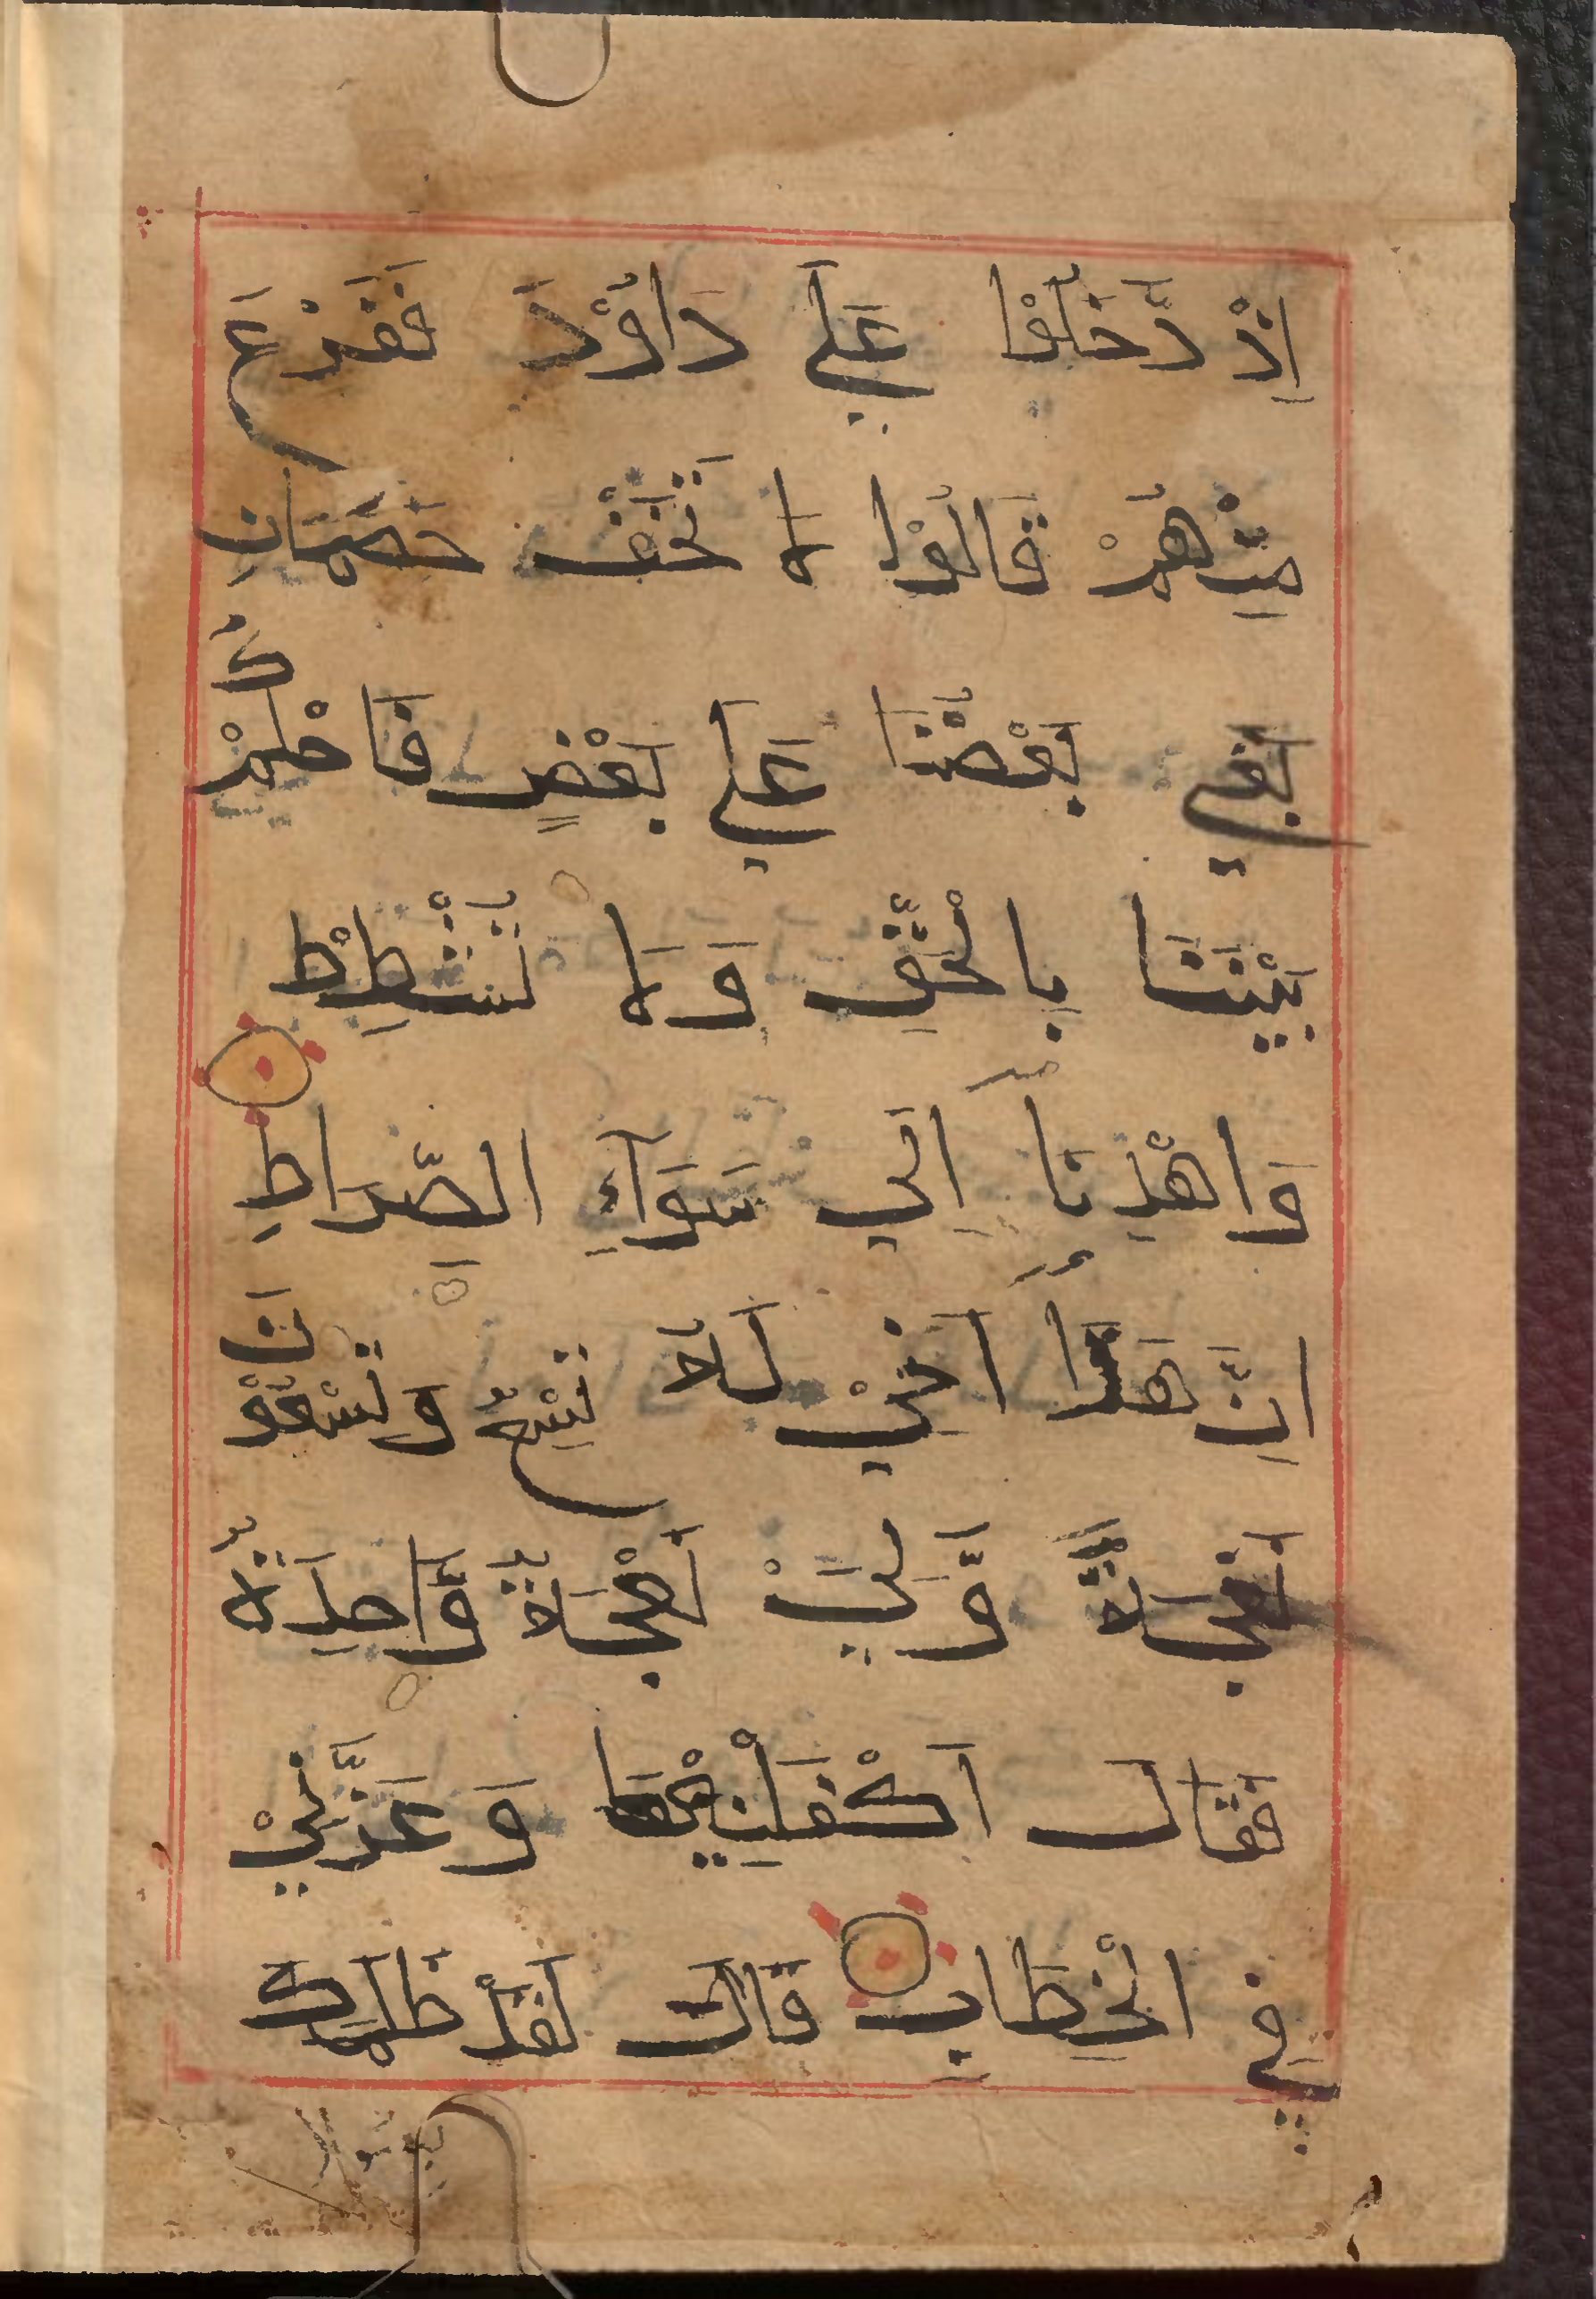 اِذْ دَّخَلُوْا عَلَي دَاوُدَ فَفَزِعَ
مِنْهُمْ قَالُوْا لا تَخَفْ خَصْمَانِ
بَغٰي بَعْضُنَا عَلَي بَعْضٍ فَاحْكُمْ
بَيْنَنَا بِالْحَقِّ وَلَا تُشْطِطْ
وَاهْدِنَا اِلَي سَوَآءِ الصِّرَاطِ
اِنَّ هَذَا اَخِيْ لَهُ تِسْعٌ وَتِسْعُوْنَ
نَعْجَةً وَّلِيَ نَعْجَةٌ وَّاحِدَةٌ
فَقَالَ اَكْفِلْنِيْهَا وَعَزَّنِيْ
فِي الْخِطَابِ قَالَ لَقَدْ ظَلَمَكَ